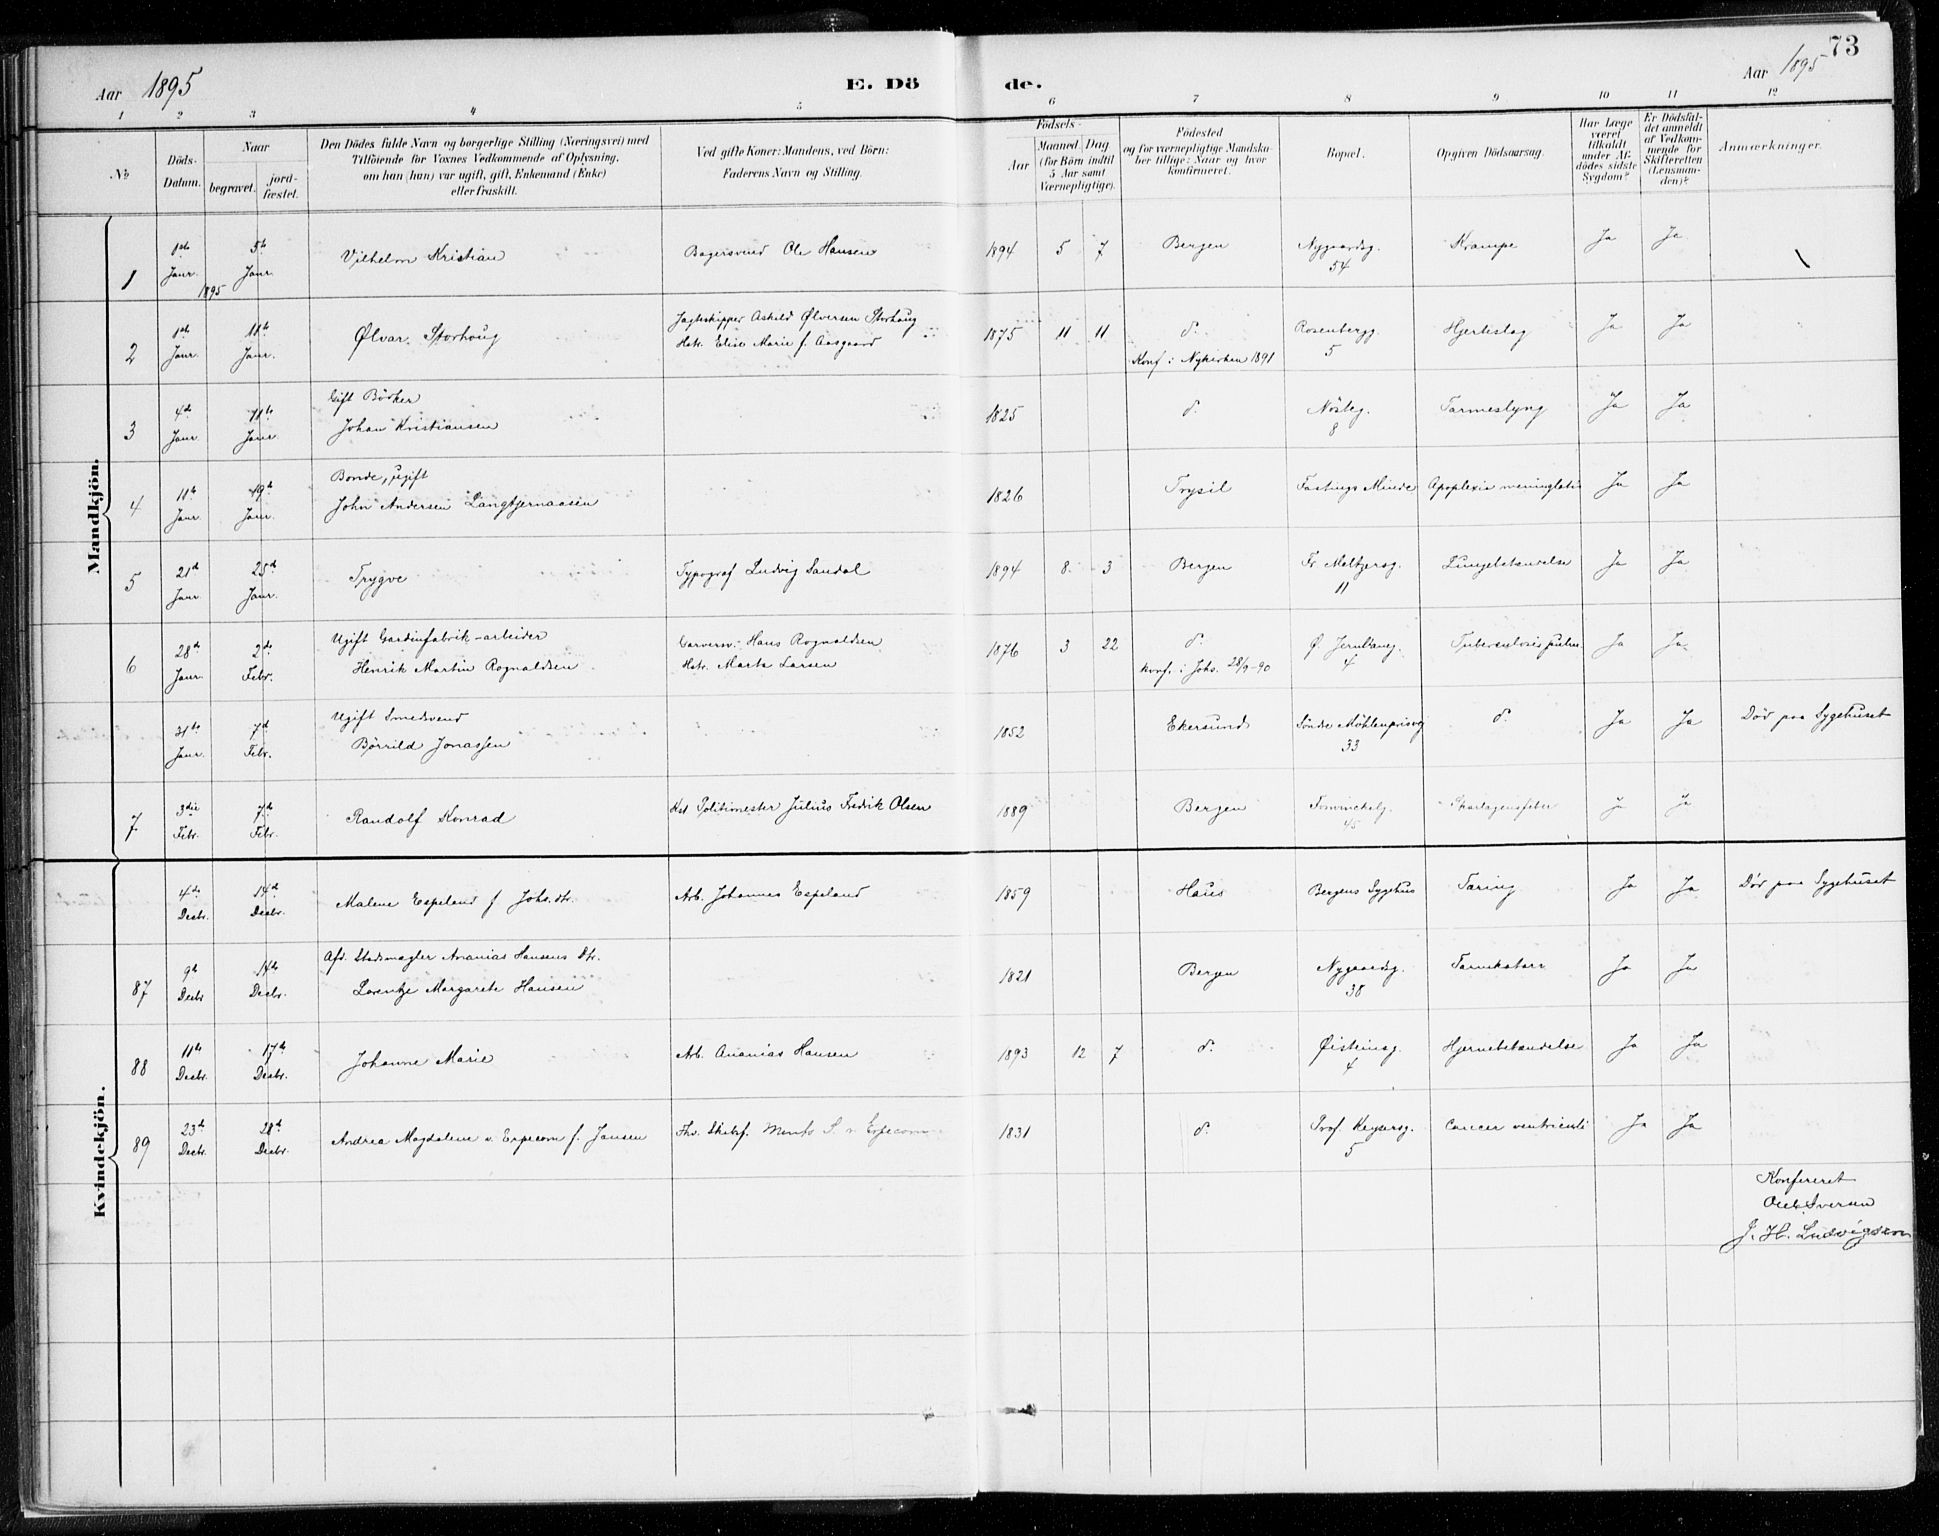 73
Aar 1895 E. Dö de. Aar 1895
1 2 3 4 5 6 7 8 9 10 11 12
№ Döds-Datum. Naar begravet. jordfæstet. Den Dödes fulde Navn og borgerlige Stilling (Næringsvei) med Tilföiende for Voxnes Vedkommende af Oplysning, om han (hun) var ugift, gift, Enkemand (Enke) eller fraskilt. Ved gifte Koner: Mandens, ved Börn: Faderens Navn og Stilling. Födsels- Aar Maaned Dag (for Börn indtil 5 Aar samt Værnepligtige). Födested og for værnepligtige Mandskaber tillige: Naar og hvor konfirmeret. Bopæl. Opgiven Dödsaarsag. Har Læge været tilkaldt under Afdödes sidste Sygdom? Er Dödsfaldet anmeldt af Vedkommende for Skifteretten (Lensmanden)? Anmærkninger.
Mandkjön.
1 1ste Janr. 1895 5te Janr. Vilhelm Kristian Bagersvend Ole Hansen 1894 5 7 Bergen Nygaardsg. 54 Krampe Ja Ja
2 1ste Janr. 11te Janr. Ølvar Storhoug Jagteskipper Askild Ølversen Storhoug Hstr. Elise Marie f. Aasgaard 1875 11 11 d. Konf. i Nykirken 1891 Rosenbergg. 5 Hjerteslag Ja Ja
3 4de Janr. 11te Janr. Gift Bödker Johan Kristiansen 1825 d. Nösteg. 8 Tarmeslyng Ja Ja
4 11te Janr. 19de Janr. Bonde, ugift John Andersen Langtjernaasen 1826 Trysil Fastings Minde Apoplexia Ja Ja
5 21de Janr. 25de Janr. Trygve Typograf Ludvig Sandal 1894 8 3 Bergen Fr. Meltzersg. 11 Lungebetændelse Ja Ja
6 28de Janr. 2den Febr. Ugift Gardinfabrik-arbeider Henrik Martin Rognaldsen Garversv. Hans Rognaldsen Hstr. Marta Larsen 1876 3 22 d. konf. i Johs. 28/9-90 Ø. Jernbaneg. 4 Tuberculosis pulm. Ja Ja
31te Janr. 7de Febr. Ugift Smedsvend Börrild Jonassen 1852 Ekersund Söndre Möhlenprisvg 33 d. Ja Ja Död paa Sygehuset
7 3die Febr. 7de Febr. Randolf Konrad Kst Politimester Julius Fredrik Olsen 1889 Bergen 45 Skarlagensfeber Ja Ja
Kvindekjön.
4de Decbr. 14de Decbr. Malene Espeland f. Johs.dtr. Arb. Johannes Espeland 1859 Haus Bergens Sygehus Taring Ja Ja Död paa Sygehuset
87 9de Decbr 14de Decbr. Afd. Stadsmægler Ananias Hansens Dtr. Lorentze Margarete Hansen 1821 Bergen Nygaardsg. 38 Tarmkatarr Ja Ja
88 11te Decbr. 17de Decbr. Johanne Marie Arb. Ananias Hansen 1893 12 7 d. Øisteinsg. 4 Hjernebetændelse Ja Ja
89 23de Decbr. 28de Decbr. Andrea Magdalene v. Erpecom f. Jansen Fhv. Skibsf. S. v. Erpecom 1831 d. Prof. Keysersg. 5 Cancer ventriculi Ja Ja
Konfereret
Ole Iversen
J. H. Ludvigsson